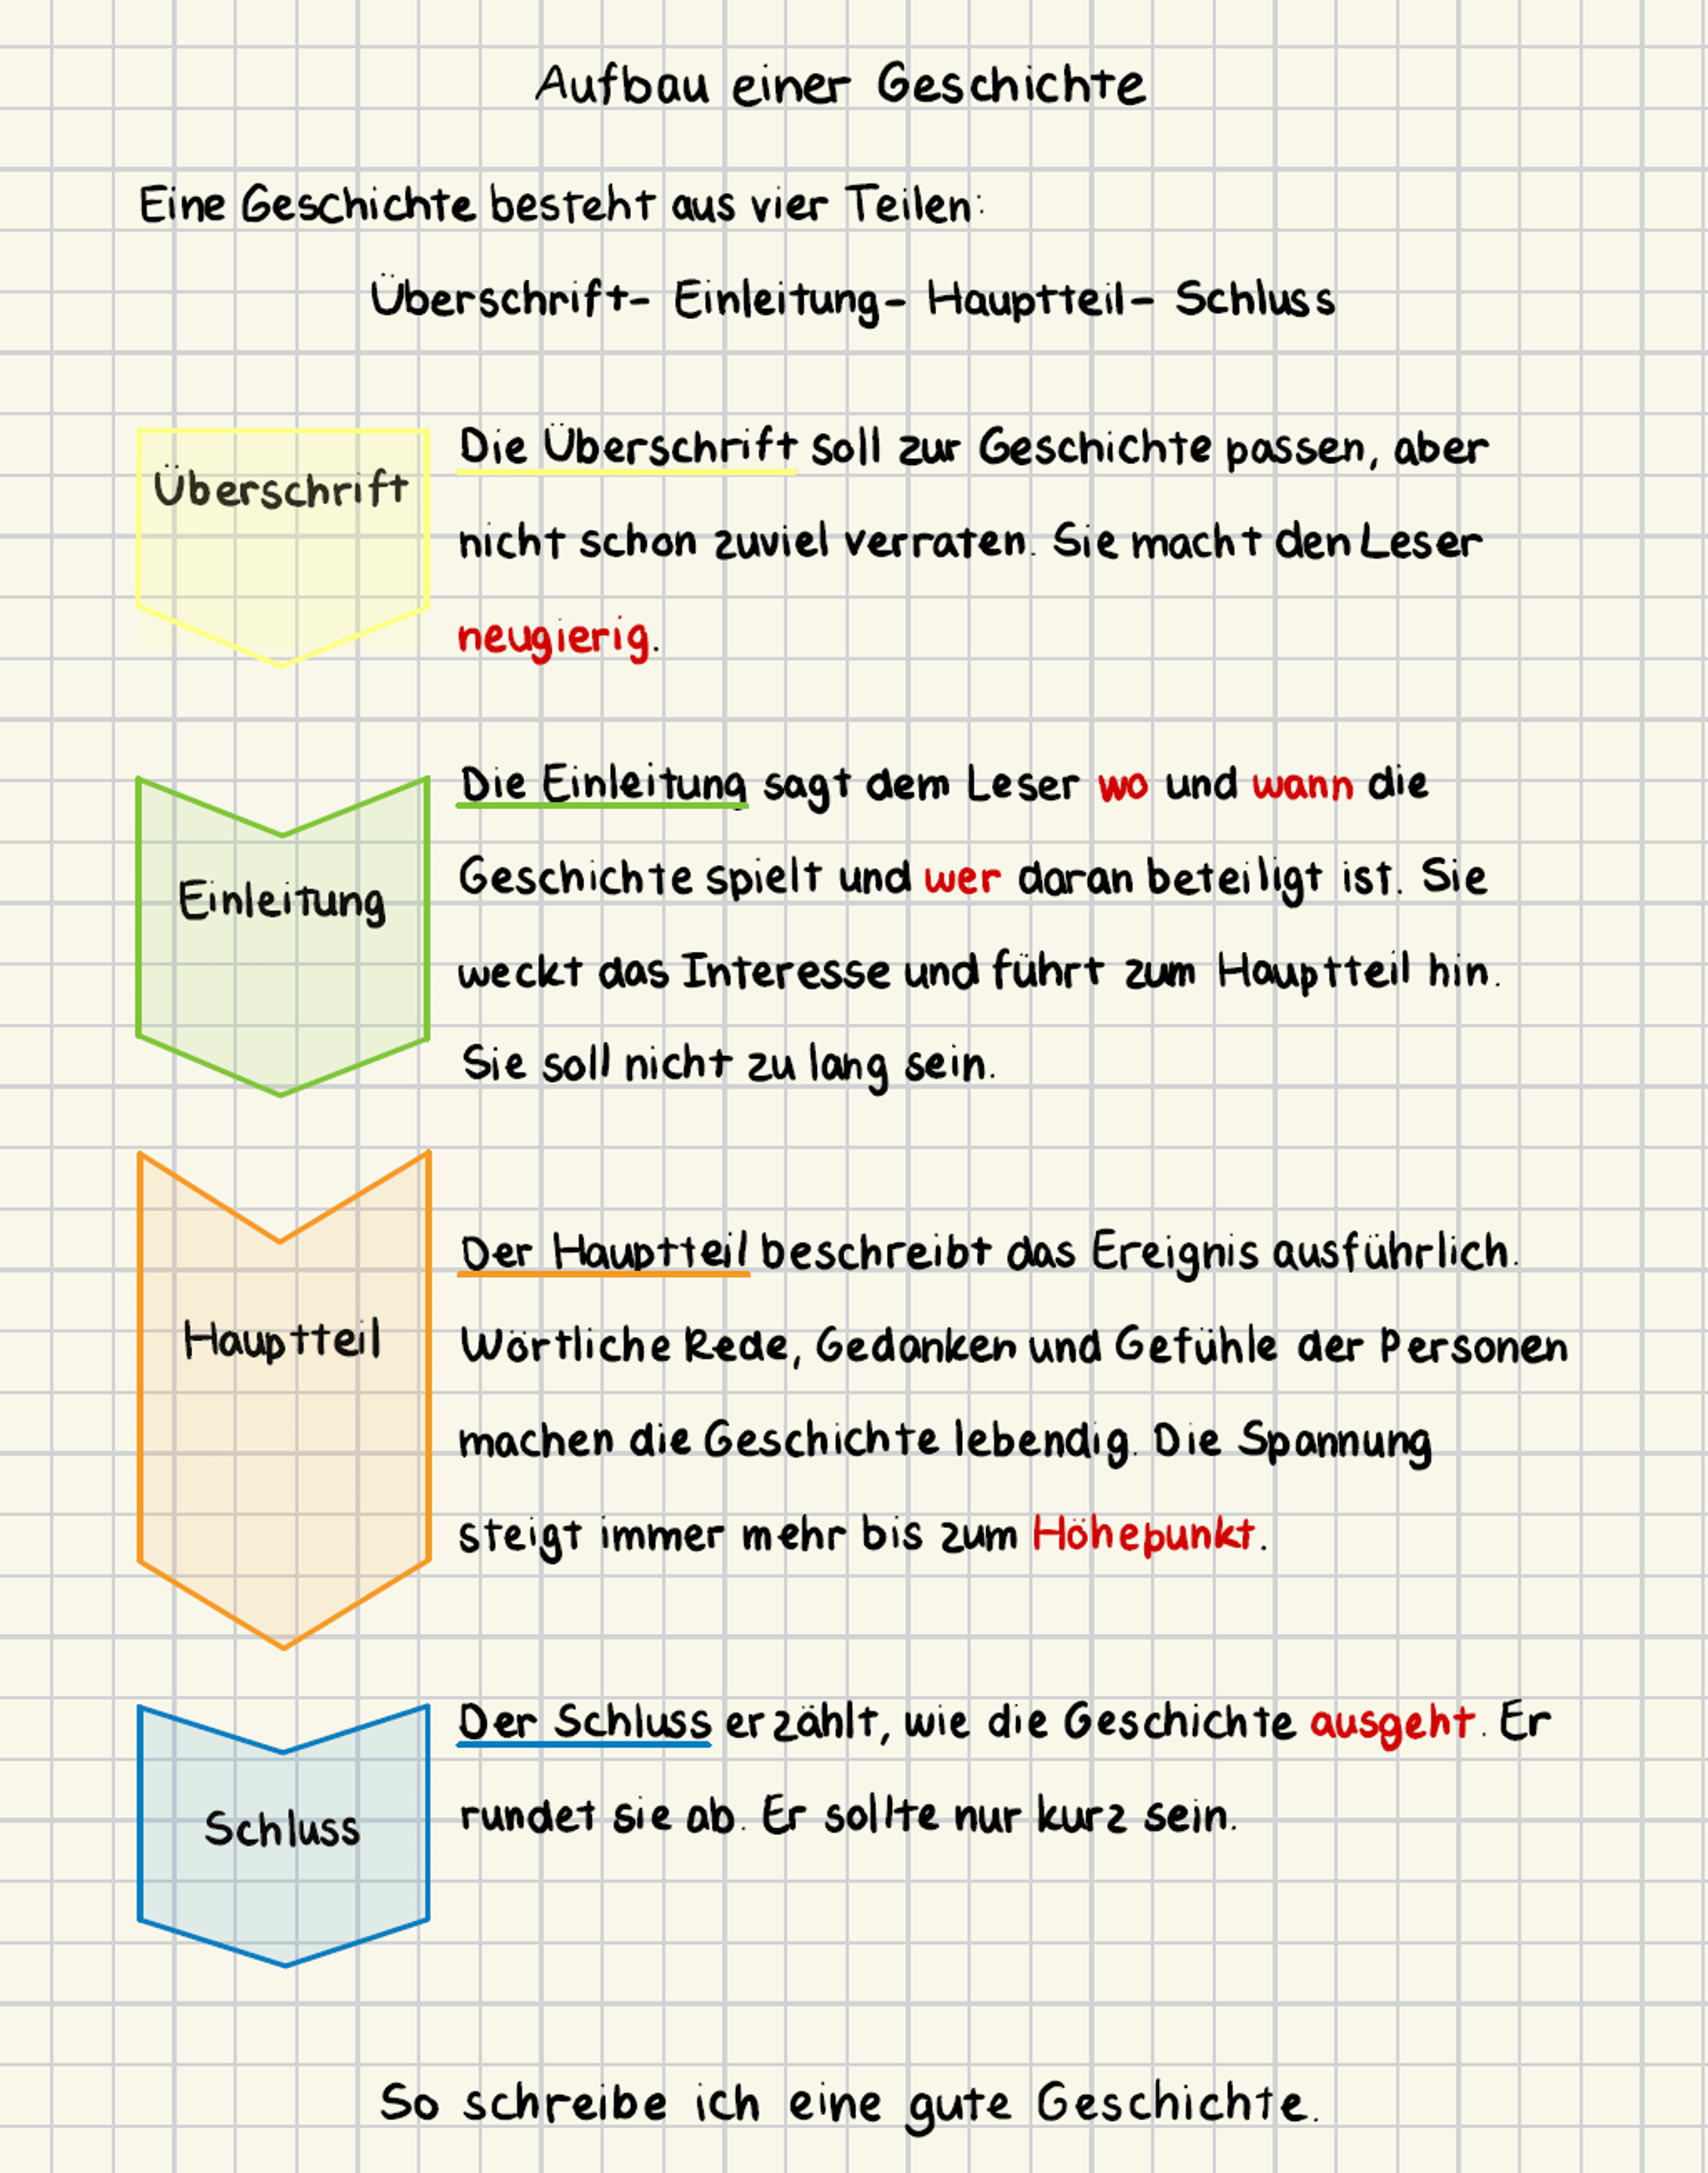 Aufbau einer Geschichte
Eine Geschichte besteht aus vier Teilen:
Überschrift- Einleitung- Hauptteil- Schluss
Überschrift
Die Überschrift soll zur Geschichte passen, aber
nicht schon zuviel verraten. Sie macht den Leser
neugierig.
Einleitung
Die Einleitung sagt dem Leser wo und wann die
Geschichte spielt und wer daran beteiligt ist. Sie
weckt das Interesse und führt zum Hauptteil hin.
Sie soll nicht zu lang sein.
Hauptteil
Der Hauptteil beschreibt das Ereignis ausführlich.
Wörtliche Rede, Gedanken und Gefühle der Personen
machen die Geschichte lebendig. Die Spannung
steigt immer mehr bis zum Höhepunkt.
Schluss
Der Schluss erzählt, wie die Geschichte ausgeht. Er
rundet sie ab. Er sollte nur kurz sein.
So schreibe ich eine gute Geschichte.